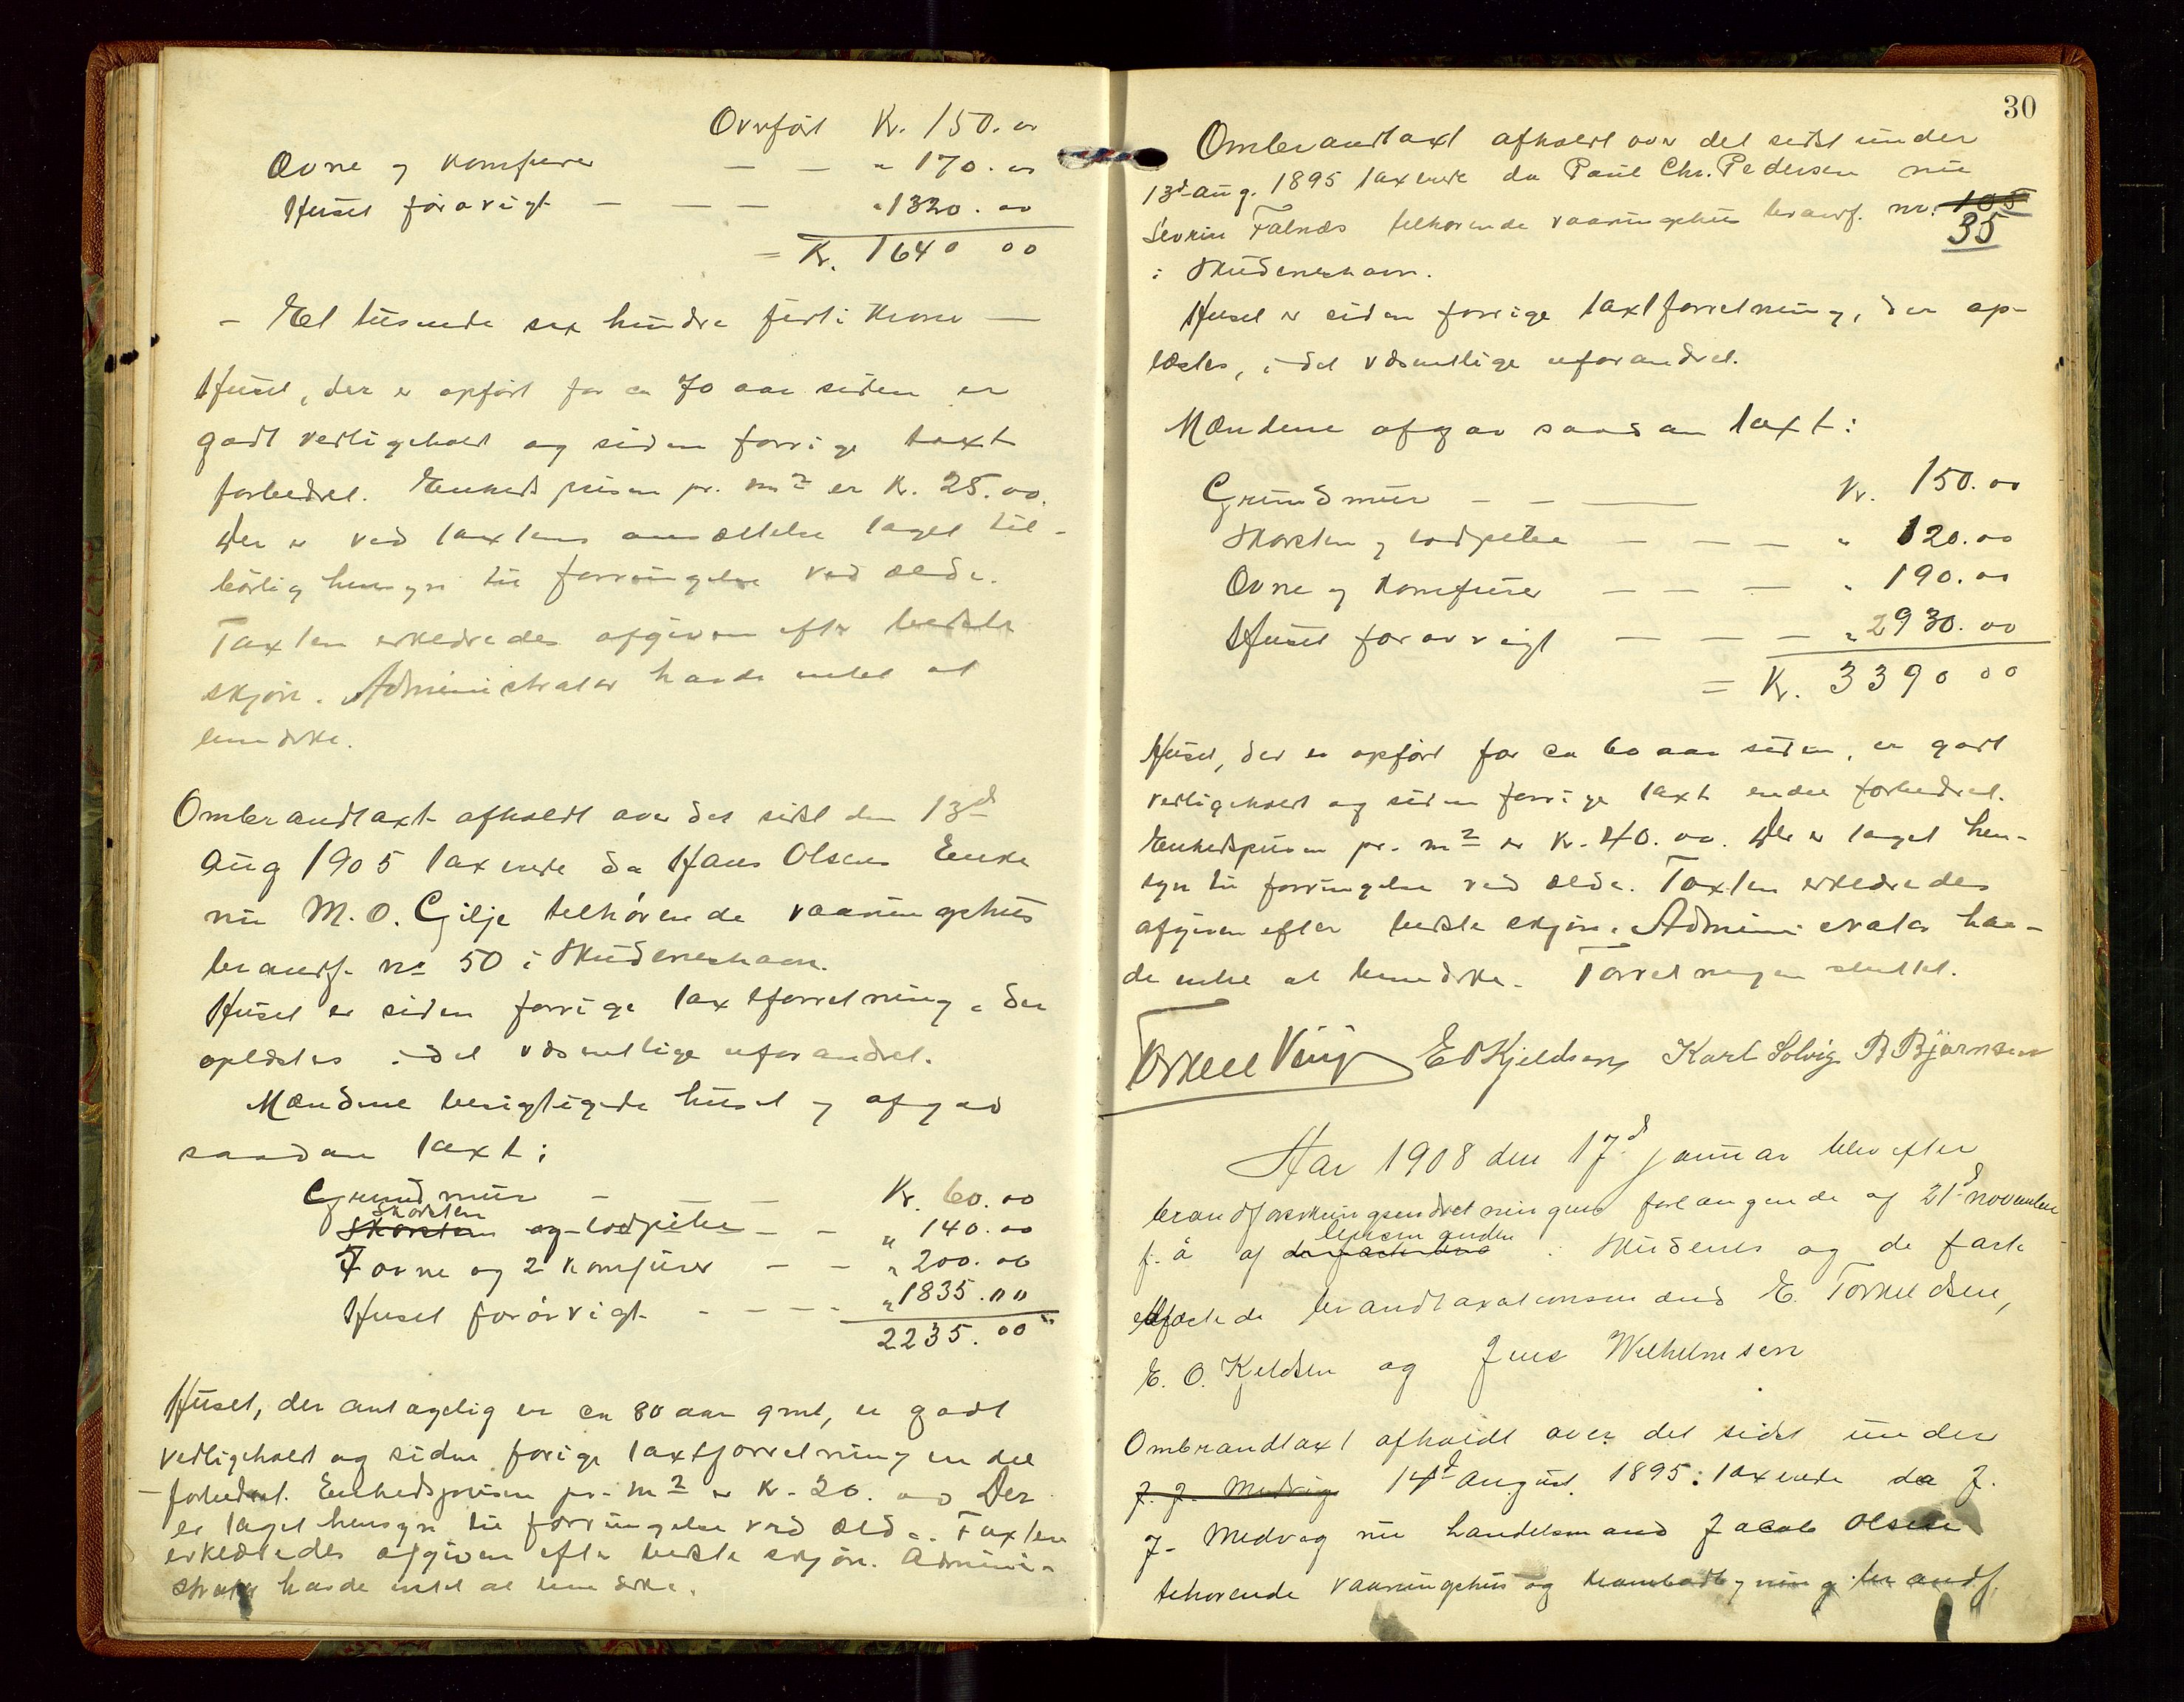 Overført Kr. 150.00
Ovne og Komfurer — — " 170.00
Huset forøvrigt — — — " 1320.00
= Kr. 1640 00
- Et tusende sex hundre førti Kroner —
Huset, der er opført for ca 70 aar siden er
godt vedligeholdt og siden forrige taxt
forbedret. Enhedsprisen pr. m² er Kr. 25.00.
Der er ved taxtens ansættelse taget til-
børlig hensyn til forringelse ved ælde.
Taxten erklæredes afgiven efter bedste
skjøn. Administrator havde intet at
bemærke.
Ombrandtaxt afholdt over det sidst den 13d
Aug 1905 taxerede da Hans Olsens Enke
nu M. O. Gilje tilhørende vaaningshus
brandf. no 50 i Skudeneshavn.
Huset er siden forrige taxtforretning, der
oplæstes i det væsentlige uforandret.
Mændene besigtigede huset og afgav
saadan taxt:
Grundmur — — Kr. 60.00
Skorsten
Skorsten og lodpibe — — " 140.00
7 ovne og 2 komfurer — — " 200.00
Huset forøvrigt - - - - " 1835.00
2235.00
Huset, der antagelig er ca 80 aar gml, er godt
vedligeholdt og siden forige taxtforretning en del
forbedret. Enhedsprisen pr. m² er Kr. 20.00 Der
er taget hensyn til forringelse ved ælde. Taxten
erklæredes afgiven efter bedste skjøn. Admini-
strator havde intet at bemærke.
30
Ombrandtaxt afholdt over det sidst under
13d aug. 1895 taxerede da Paul Chr. Pedersen nu
Sevrin Falnæs tilhørende vaaningshus brandf. nr. 105
35
i Skudeneshavn.
Huset er siden forrige taxtforretning, der op-
læstes, i det væsentlige uforandret.
Mændene afgav saadan taxt:
Grundmur — — — Kr. 150.00
Skorsten og lodpibe — — — " 120.00
Ovne og Komfurer — — — " 190.00
Huset forøvrigt — — — " 2930.00
= Kr. 3390 00
Huset, der er opført for ca 60 aar siden, er godt
vedligeholdt og siden forrige taxt endel forbedret.
Enhedsprisen pr. m² er Kr. 40.00. Der er taget hen-
syn til forringelse ved ælde. Taxten erklæredes
afgiven efter bedste skjøn. Administrator hav-
de intet at bemærke. Forretningen sluttet.
E O Kjeldsen Karl Solvig B Bjørnsen
Aar 1908 den 17d januar blev efter
brandforsikringsindretningens forlangende af 21d november
lensmanden
f. å af i Skudenes og de faste
edfæstede brandtaxationsmænd E. Torkeldsen,
E. O. Kjeldsen og Jens Wilhelmsen
Ombrandtaxt afholdt over det sidst under
J. J. Medvig 14d august 1895: taxerede da J.
J. Medvag nu handelsmand Jacob Olsen
tilhørende vaaningshus og krambodbygning brandf.